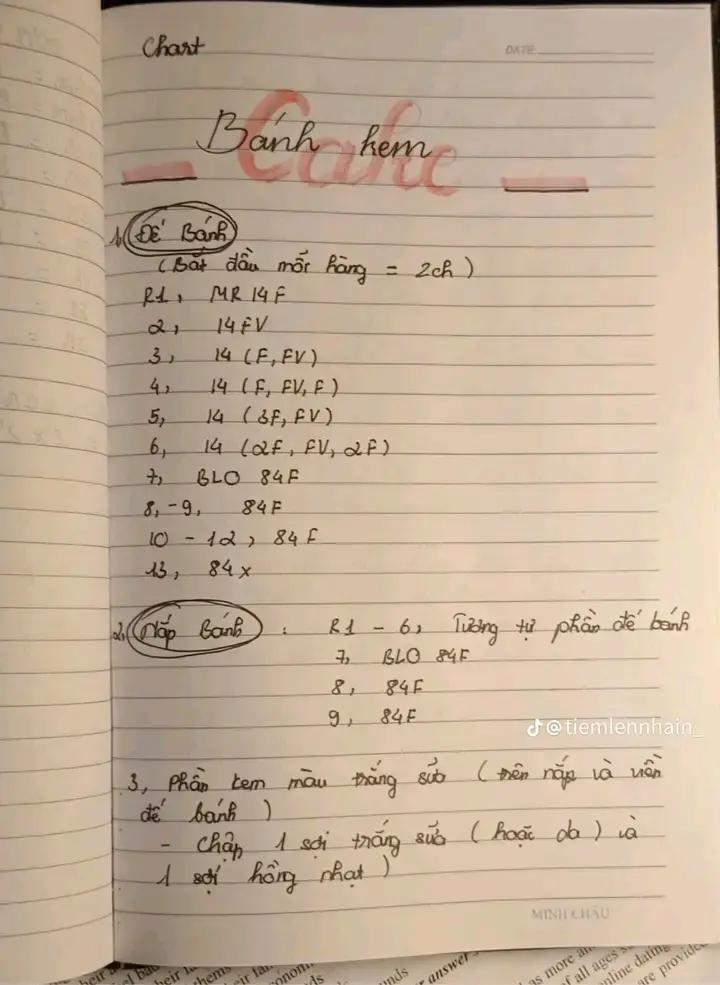 Chart
DATE
Cake
Bánh kem
1, Đế Bánh
(Bắt đầu mỗi hàng = 2ch)
R1, MR 14F
2, 14FV
3, 14 (F, FV)
4, 14 (F, FV, F)
5, 14 (3F, FV)
6, 14 (2F, FV, 2F)
7, BLO 84F
8, -9, 84F
10 - 12, 84F
13, 84x
2, Nắp Bánh : R1 - 6, Tương tự phần đế bánh
7, BLO 84F
8, 84F
9, 84F
@tiemlennhain_
3, Phần kem màu trắng sữa (trên nắp và viền
đế bánh)
- Chập 1 sợi trắng sữa (hoặc da) và
1 sợi hồng nhạt)
MINH CHÂU
answer
as more
of all ages
online dating
are provided